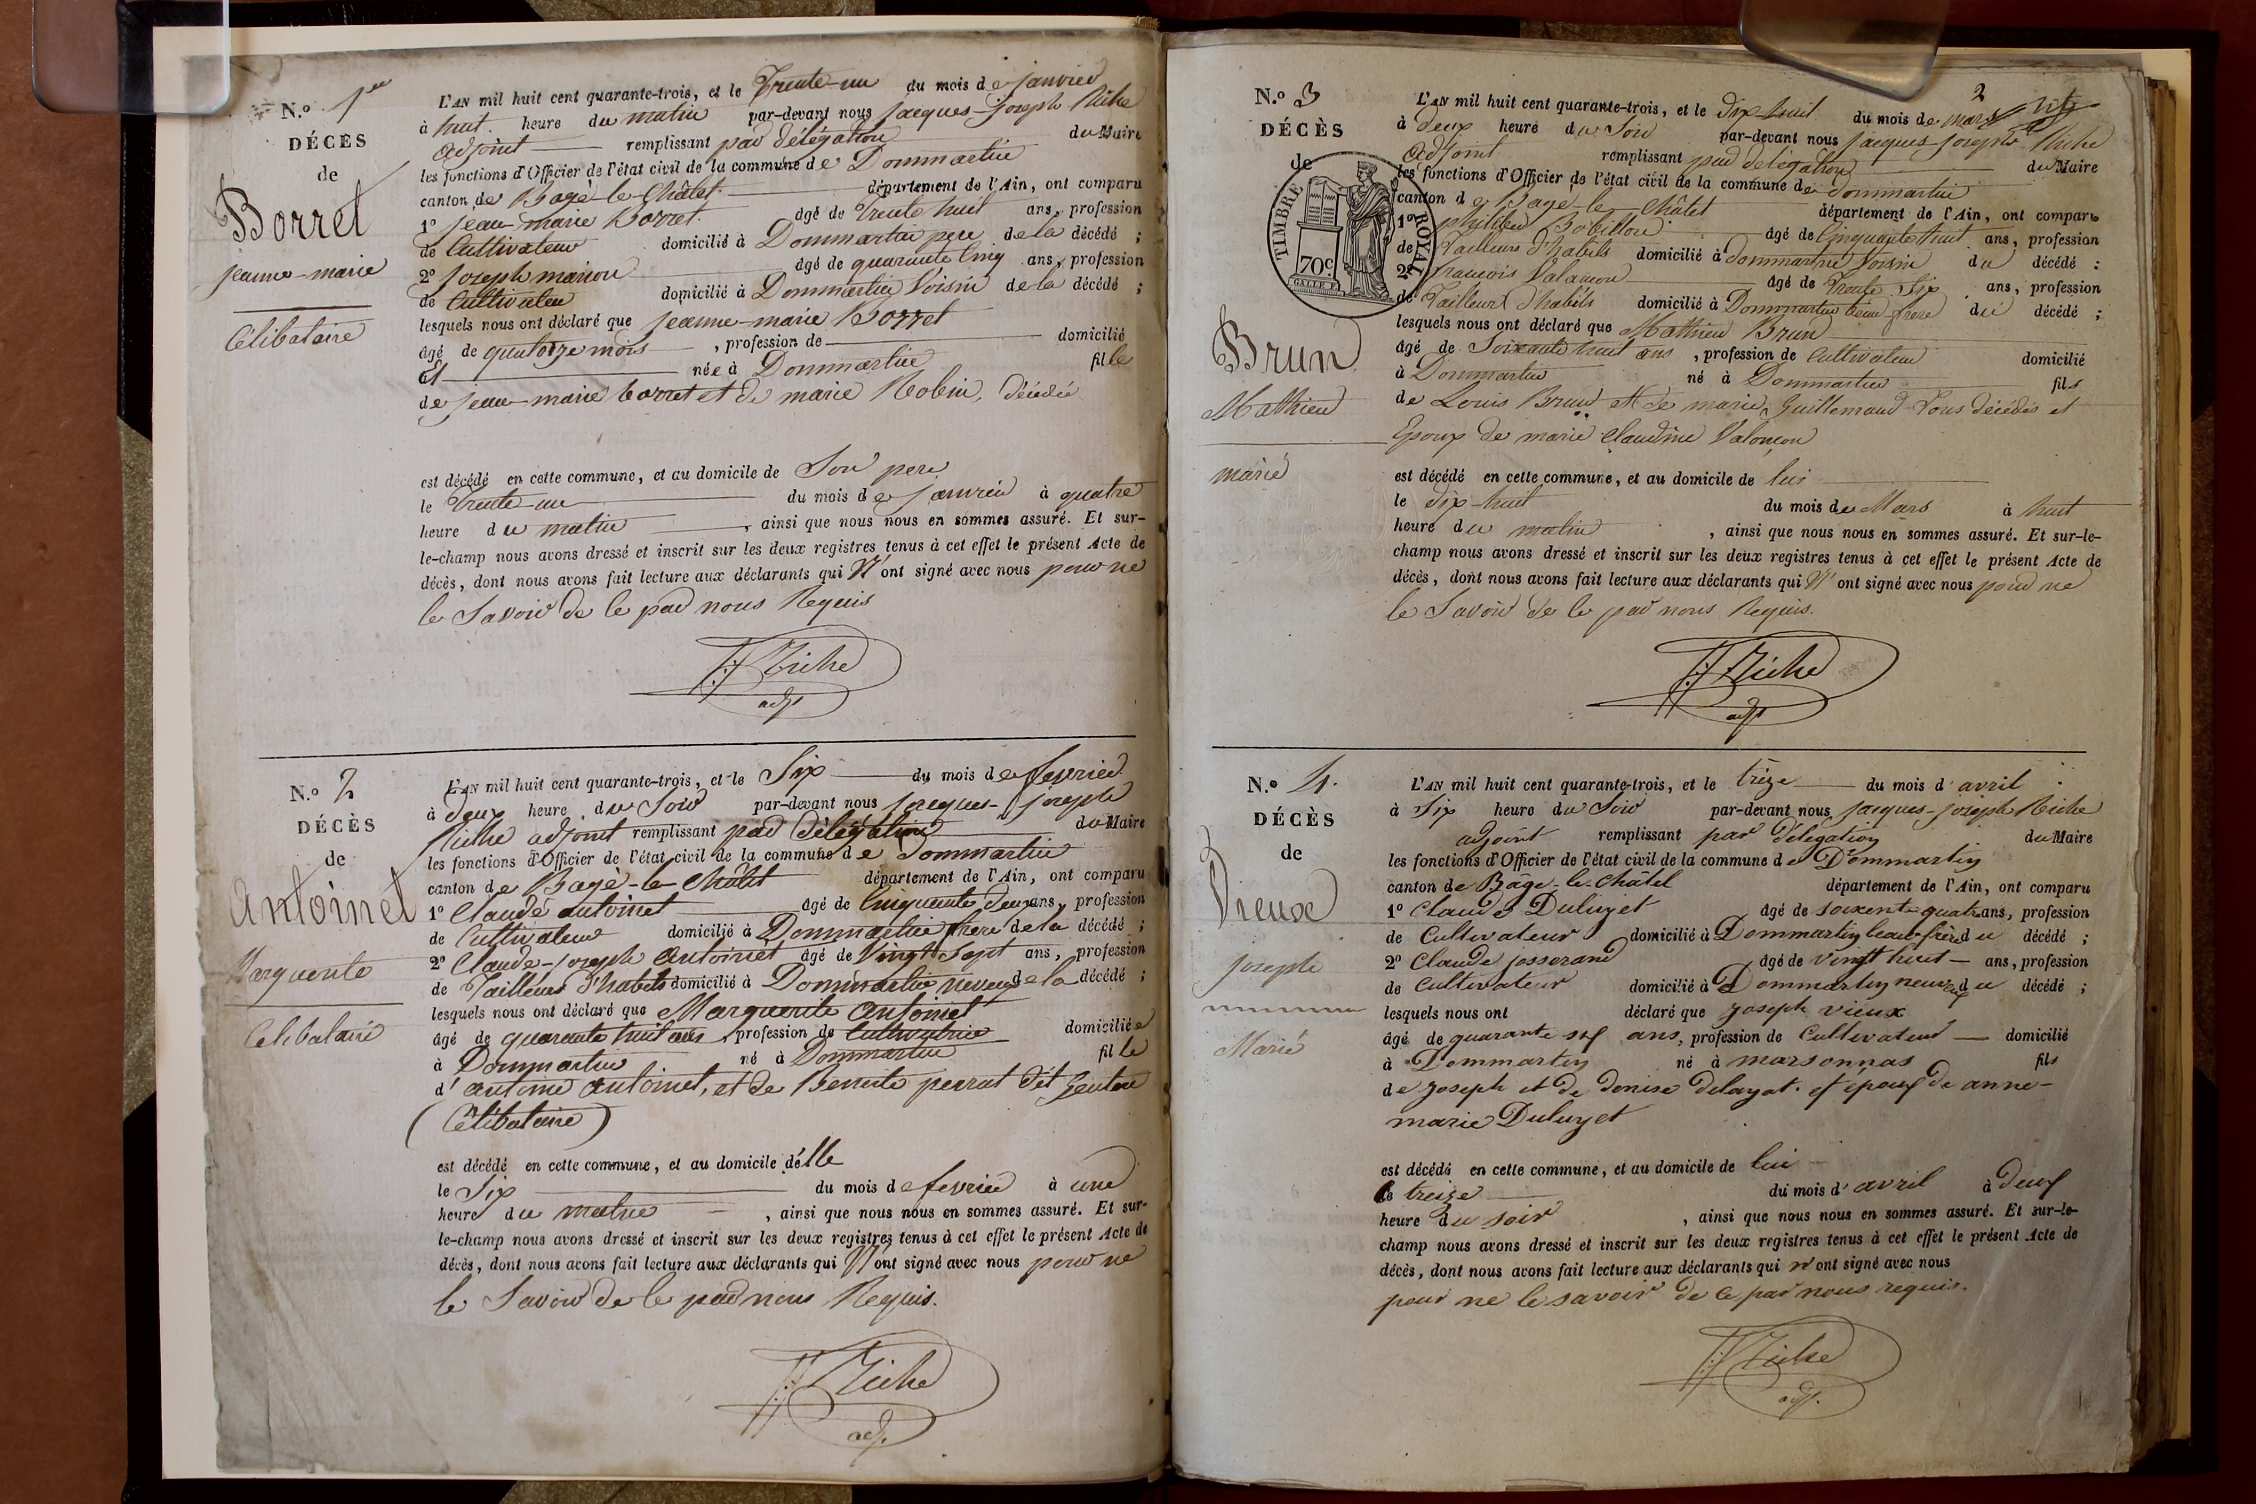 N.º 1er
DÉCÈS
de
Borret
jeanne-marie
Célibataire
L'AN mil huit cent quarante-trois, et le Trente-un du mois de janvier
à huit heure du matin par-devant nous jacques-joseph Riche
adjoint remplissant par délégation du Maire
les fonctions d'Officier de l'état civil de la commune de Dommartin
canton de Bagé-le-Châtel département de l'Ain, ont comparu
1º jean-marie Borret âgé de Trente huit ans, profession
de Cultivateur domicilié à Dommartin pere de la décédé ;
2º joseph manion âgé de quarante Cinq ans, profession
de Cultivateur domicilié à Dommartin Voisin de la décédé ;
lesquels nous ont déclaré que jeanne-marie Borret
âgé de quatorze mois , profession de domicilié
et née à Dommartin fille
de jean-marie borret et de marie Robin, décédée
est décédé en cette commune, et au domicile de Son pere
le Trente-un du mois de janvier à quatre
heure du matin , ainsi que nous nous en sommes assuré. Et sur-
le-champ nous avons dressé et inscrit sur les deux registres tenus à cet effet le présent Acte de
décès, dont nous avons fait lecture aux déclarants qui N'ont signé avec nous pour ne
le Savoir de le par nous Requis
JJ Riche
adjt
N.º 2
DÉCÈS
de
Antoinet
Marguerite
Célibataire
L'AN mil huit cent quarante-trois, et le Six du mois de fevrier
à deux heure du Soir par-devant nous jacques-joseph
Riche adjoint remplissant par délégation du Maire
les fonctions d'Officier de l'état civil de la commune de Dommartin
canton de Bagé-le-Châtel département de l'Ain, ont comparu
1º Claude antoinet âgé de Cinquante deux ans, profession
de Cultivateur domicilié à Dommartin frere de la décédé ;
2º Claude-joseph antoinet âgé de Vingt Sept ans, profession
de Tailleur d'habits domicilié à Dommartin neveu de la décédé ;
lesquels nous ont déclaré que Marguerite antoinet
âgé de quarante huit ans , profession de Cultivatrice domiciliée
à Dommartin né à Dommartin fille
d' antoine antoinet, et de Benoite perrat dit
(Célibataire)
est décédé en cette commune, et au domicile d'elle
le Six du mois de fevrier à une
heure du matin , ainsi que nous nous en sommes assuré. Et sur-
le-champ nous avons dressé et inscrit sur les deux registres tenus à cet effet le présent Acte de
décès, dont nous avons fait lecture aux déclarants qui N'ont signé avec nous pour ne
le Savoir de le par nous Requis.
JJ Riche
adj.
2
N.º 3
DÉCÈS
de
TIMBRE ROYAL
70 c.
GALLE
Brun
Mathieu
marié
L'AN mil huit cent quarante-trois, et le dix-huit du mois de mars
à deux heure du Soir par-devant nous jacques joseph Riche
adjoint remplissant par délégation du Maire
les fonctions d'Officier de l'état civil de la commune de Dommartin
canton de Bagé-le-Châtel département de l'Ain, ont comparu
1º philibert Bobillon âgé de Cinquante huit ans, profession
de Tailleur d'habits domicilié à Dommartin Voisin du décédé :
2º francois Valancon âgé de Trente Six ans, profession
de Tailleur d'habits domicilié à Dommartin beau-frere du décédé ;
lesquels nous ont déclaré que Mathieu Brun
âgé de Soixante huit ans , profession de Cultivateur domicilié
à Dommartin né à Dommartin fils
de Louis Brun et de marie Guillemaud Tous décédés et
Epoux de marie claudine Valonçon
est décédé en cette commune, et au domicile de lui
le dix-huit du mois de Mars à huit
heure du matin , ainsi que nous nous en sommes assuré. Et sur-le-
champ nous avons dressé et inscrit sur les deux registres tenus à cet effet le présent Acte de
décès, dont nous avons fait lecture aux déclarants qui N'ont signé avec nous pour ne
le Savoir de le par nous Requis.
JJ Riche
adjt
N.º 4.
DÉCÈS
de
Vieux
joseph
Marié
L'AN mil huit cent quarante-trois, et le trèze du mois d'avril
à Six heure du Soir par-devant nous jacques-joseph Riche
adjoint remplissant par délégation du Maire
les fonctions d'Officier de l'état civil de la commune de Dommartin
canton de Bâgé-le-châtel département de l'Ain, ont comparu
1º Claude Duluyet âgé de soixente-quatre ans, profession
de Cultivateur domicilié à Dommartin beau-frère du décédé ;
2º Claude josserand âgé de vingt huit ans, profession
de Cultivateur domicilié à Dommartin neuveux du décédé ;
lesquels nous ont déclaré que joseph vieux
âgé de quarante ans, profession de Cultivateur domicilié
à Dommartin né à marsonnas fils
de joseph et de denise delayat. et époux de anne-
marie Duluyet
est décédé en cette commune, et au domicile de lui
le treize du mois d'avril à deux
heure du soir , ainsi que nous nous en sommes assuré. Et sur-le-
champ nous avons dressé et inscrit sur les deux registres tenus à cet effet le présent Acte de
décès, dont nous avons fait lecture aux déclarants qui n'ont signé avec nous
pour ne le savoir de ce par nous requis.
JJ Riche
adj.